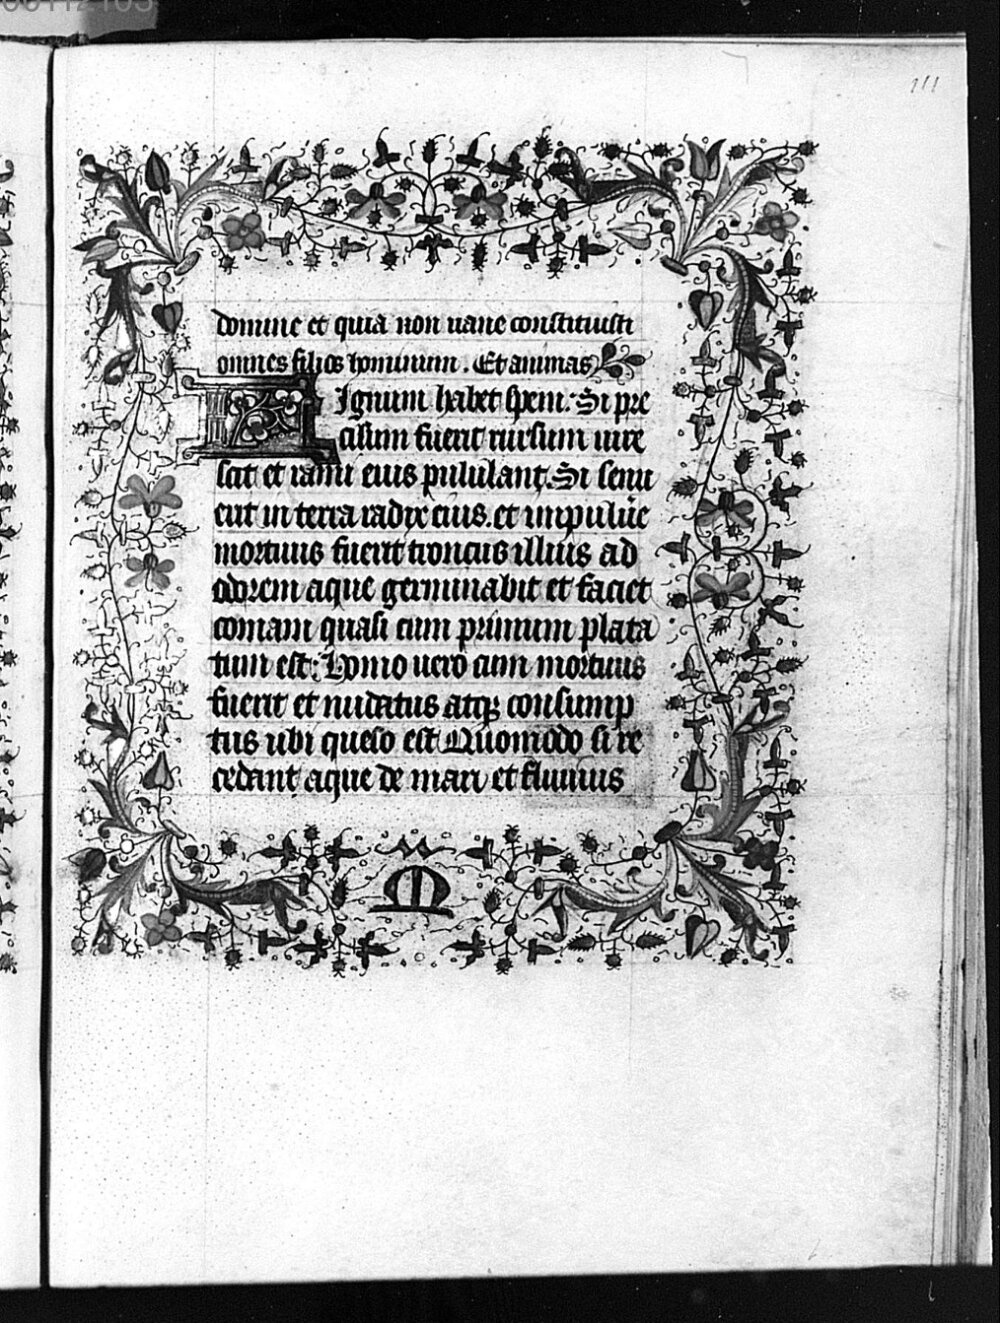 111
domine et quia non uane constituisti
omnes filios hominum. Et animas
Lignum habet spem. Si pre
cisum fuerit rursum uire
scit et rami eius pululant. Si senu
erit in terra radix eius. et in puluere
mortuus fuerit troncus illius ad
odorem aque germinabit et faciet
comam quasi cum primum planta
tum est. Homo uero cum mortuus
fuerit et nudatus atque consump
tus ubi queso est Quomodo si re
cedant aque de mari et fluuius
M